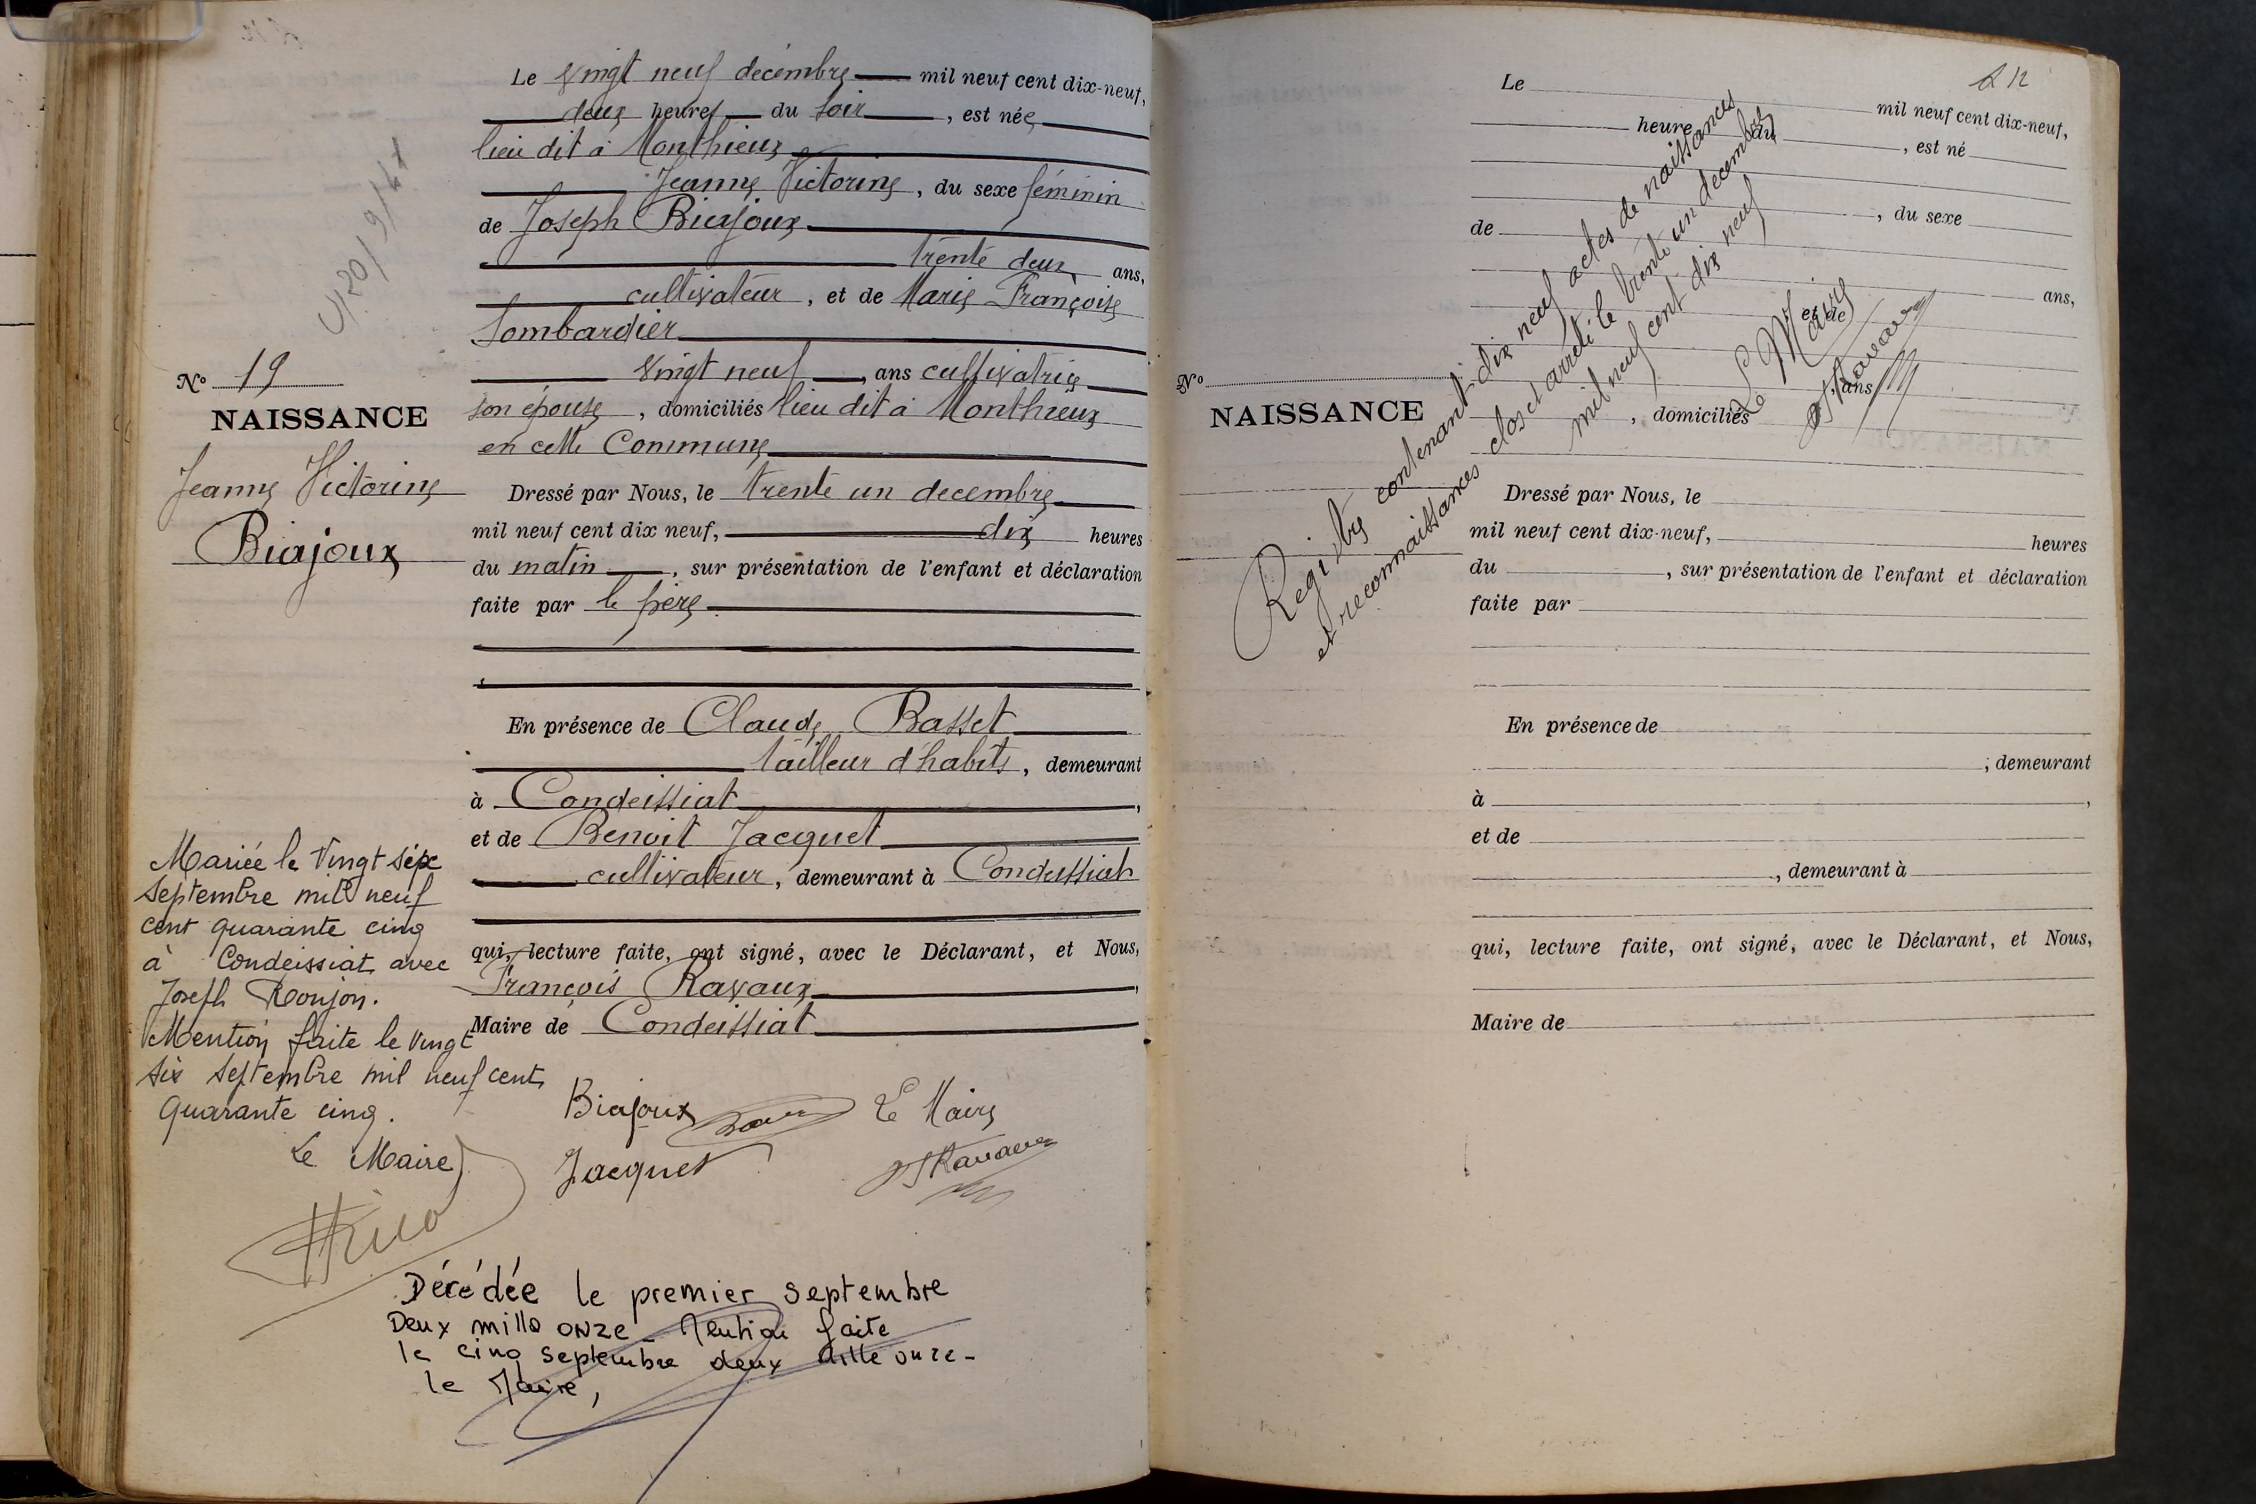 Le vingt neuf décembre mil neuf cent dix-neuf,
deux heures du soir, est née
lieu dit à Monthieux
Jeanne Victorine, du sexe féminin
de Joseph Biajoux
trente deux ans,
cultivateur, et de Marie Françoise
Lombardier
vingt neuf, ans cultivatrice
son épouse, domiciliés lieu dit à Monthieux
en cette Commune
Nº 19
NAISSANCE
Jeanne Victorine
Biajoux
Dressé par Nous, le trente un decembre
mil neuf cent dix neuf, dix heures
du matin, sur présentation de l'enfant et déclaration
faite par le père
En présence de Claude Basset
tailleur d'habits, demeurant
à Condeissiat,
et de Benoit Jacquet
cultivateur, demeurant à Condeissiat
qui, lecture faite, ont signé, avec le Déclarant, et Nous,
François Ravaux,
Maire de Condeissiat
Biajoux
Le Maire
Jacquet
Ravaux
Mariée le Vingt sept
septembre mil neuf
cent quarante cinq
à Condeissiat avec
Joseph Roujon.
Mention faite le vingt
six septembre mil neuf cent
quarante cinq.
Le Maire
Décédée le premier septembre
Deux mille onze _ Mention faite
le cinq septembre deux mille onze -
le Maire,
12
Le mil neuf cent dix-neuf,
heure du, est né
, du sexe
de
ans,
et de
, ans
, domiciliés
Nº
NAISSANCE
Registre contenant dix neuf actes de naissances
et reconnaissances clos et arrêté le trente un decembre
mil neuf cent dix neuf
Le Maire
Ravaux
Dressé par Nous, le
mil neuf cent dix-neuf, heures
du , sur présentation de l'enfant et déclaration
faite par
En présence de
, demeurant
à ,
et de
, demeurant à
qui, lecture faite, ont signé, avec le Déclarant, et Nous,
Maire de